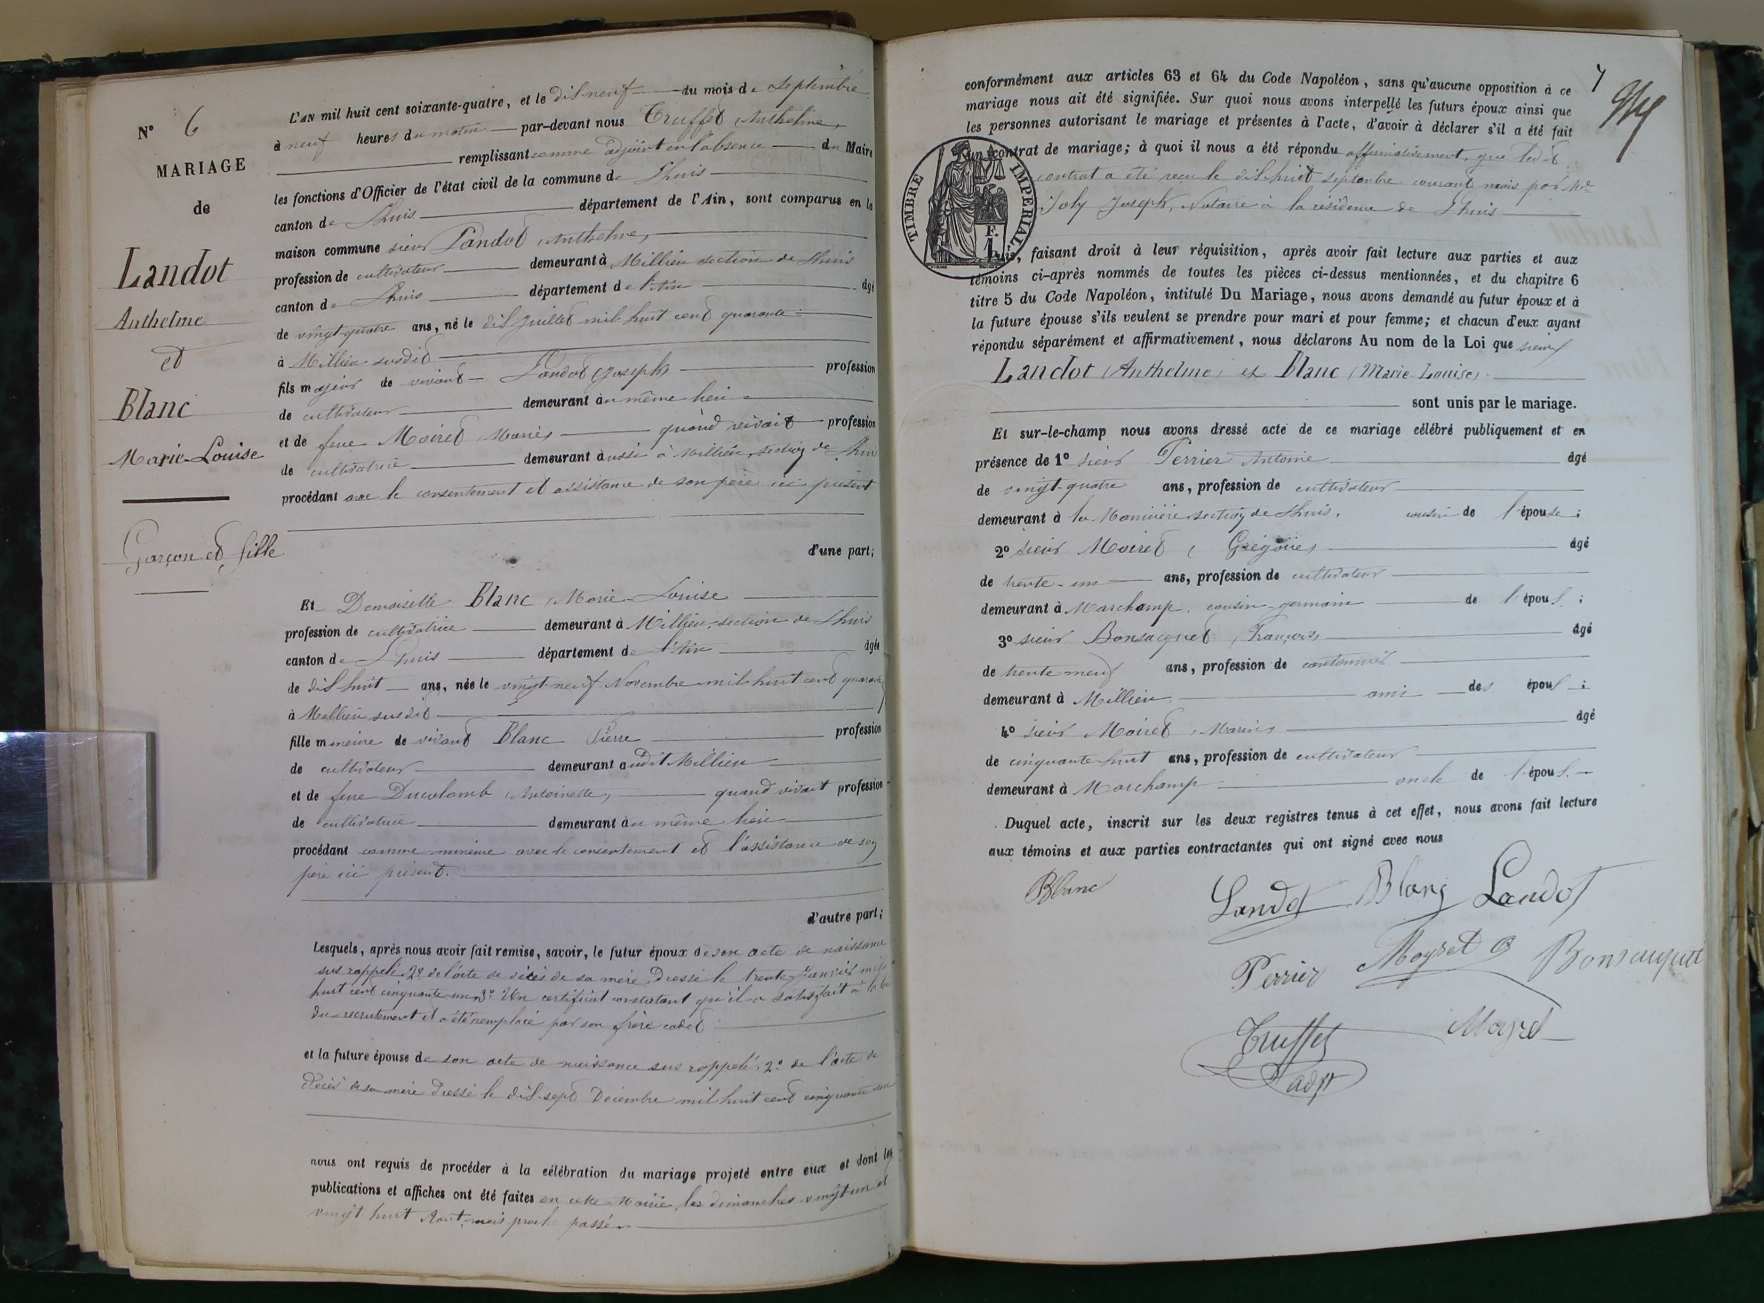 N° 6
MARIAGE
de
Landot
Anthelme
et
Blanc
Marie-Louise
Garçon et fille
L'AN mil huit cent soixante-quatre, et le dix neuf du mois de Septembre
à neuf heures du matin par-devant nous Truffet Anthelme,
remplissant comme adjoint en l'absence du Maire
les fonctions d'Officier de l'état civil de la commune de Lhuis
canton de Lhuis département de l'Ain, sont comparus en la
maison commune sieur Landot Anthelme,
profession de cultivateur demeurant à Millieu section de Lhuis
canton de Lhuis département de l'Ain âgé
de vingt quatre ans, né le dix Juillet mil huit cent quarante
à Millieu susdit
fils majeur de vivant Landot Joseph profession
de cultivateur demeurant au même lieu
et de feue Moiret Marie quand vivait profession
de cultivatrice demeurant aussi à Millieu, section de Lhuis
procédant avec le consentement et assistance de son père ici présent
d'une part;
Et Demoiselle Blanc Marie-Louise
profession de cultivatrice demeurant à Millieu, section de Lhuis
canton de Lhuis département de l'Ain âgée
de dix huit ans, née le vingt neuf Novembre mil huit cent quarante
à Millieu susdit
fille mineure de vivant Blanc Pierre profession
de cultivateur demeurant audit Millieu
et de feue Ducolomb Antoinette, quand vivait profession
de cultivatrice demeurant au même lieu
procédant comme mineure avec le consentement et l'assistance de son
père ici présent.
d'autre part;
Lesquels, après nous avoir fait remise, savoir, le futur époux de son acte de naissance
sus rappelé 2° de l'acte de décès de sa mère dressé le trente Janvier mil
huit cent cinquante un 3° Un certificat constatant qu'il a satisfait à la loi
du recrutement et a été remplacé par son frère cadet
et la future épouse de son acte de naissance sus rappelé, 2° de l'acte de
décès de sa mère dressé le dix-sept Décembre mil huit cent cinquante
nous ont requis de procéder à la célébration du mariage projeté entre eux et dont les
publications et affiches ont été faites en cette Mairie, les dimanches vingt un et
vingt huit Août, mois proche passé
7
conformément aux articles 63 et 64 du Code Napoléon, sans qu'aucune opposition à ce
mariage nous ait été signifiée. Sur quoi nous avons interpellé les futurs époux ainsi que
les personnes autorisant le mariage et présentes à l'acte, d'avoir à déclarer s'il a été fait
un contrat de mariage; à quoi il nous a été répondu affirmativement, que ledit
contrat a été reçu le dix huit septembre courant mois par Me
Joly Joseph, Notaire à la résidence de Lhuis
TIMBRE IMPÉRIAL
F.
1.
Puis, faisant droit à leur réquisition, après avoir fait lecture aux parties et aux
témoins ci-après nommés de toutes les pièces ci-dessus mentionnées, et du chapitre 6
titre 5 du Code Napoléon, intitulé Du Mariage, nous avons demandé au futur époux et à
la future épouse s'ils veulent se prendre pour mari et pour femme; et chacun d'eux ayant
répondu séparément et affirmativement, nous déclarons Au nom de la Loi que sieur
Landot (Anthelme) et Blanc (Marie-Louise)
sont unis par le mariage.
Et sur-le-champ nous avons dressé acte de ce mariage célébré publiquement et en
présence de 1° sieur Perrier Antoine âgé
de vingt-quatre ans, profession de cultivateur
demeurant à la section de Lhuis, cousin de l'épouse;
2° sieur Moiret (Grégoire) âgé
de trente-un ans, profession de cultivateur
demeurant à Marchamp, cousin-germain de l'époux;
3° sieur Bonsacquet François âgé
de trente neuf ans, profession de cantonnier
demeurant à Millieu ami des époux;
4° sieur Moiret, Marin âgé
de cinquante huit ans, profession de cultivateur
demeurant à Marchamp oncle de l'époux.
Duquel acte, inscrit sur les deux registres tenus à cet effet, nous avons fait lecture
aux témoins et aux parties contractantes qui ont signé avec nous
Blanc Landot Blanc Landot
Perrier Moyret G Bonsacquet
Truffet Moyret
adjt